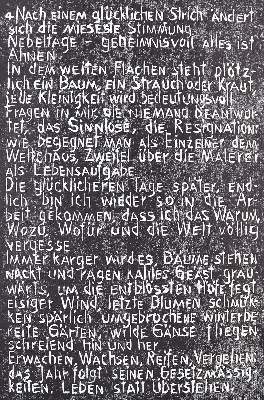 4. NACH EINEM GLÜCKLICHEN STRICH ÄNDERT
SICH DIE MIESESTE STIMMUNG
NEBELTAGE - GEHEIMNISVOLL ALLES IST
AHNEN
IN DEM WEITEN FLACHEN STEHT PLÖTZ-
LICH EIN BAUM, EIN STRAUCH ODER KRAUT
JEDE KLEINIGKEIT WIRD BEDEUTUNGSVOLL
FRAGEN IN MIR DIE NIEMAND BEANTWOR-
TET, DAS SINNLOSE, DIE RESIGNATION:
WIE BEGEGNET MAN ALS EINZELNER DEM
WELTCHAOS, ZWEIFEL ÜBER DIE MALEREI
ALS LEBENSAUFGABE
DIE GLÜCKLICHEREN TAGE SPÄTER, END-
LICH BIN ICH WIEDER SO IN DIE AR-
BEIT GEKOMMEN, DASS ICH DAS WARUM,
WOZU, WOFÜR UND DIE WELT VÖLLIG
VERGESSE
IMMER KARGER WIRD ES, BÄUME STEHEN
NACKT UND RAGEN KAHLES GEÄST, GRAU
WÄRTS, UM DIE ENTBLÖSSTEN HÖFE FEGT
EISIGER WIND, LETZTE BLUMEN SCHMÜK-
KEN SPÄRLICH UMGEBROCHENE WINTERBE
REITE GÄRTEN, WILDGÄNSE FLIEGEN
SCHREIEND HIN UND HER
ERWACHEN, WACHSEN, REIFEN, VERGEHEN:
DAS JAHR FOLGT SEINEN GESETZMÄSSIG-
KEITEN, LEBEN STATT ÜBERSTEHEN.